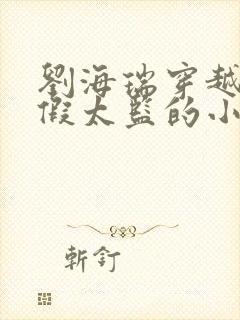 劉海瑞穿越
假太監的小
斬釘